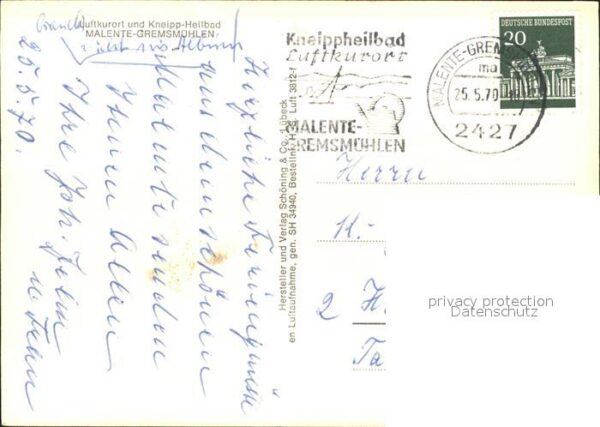 Luftkurort und Kneipp-Heilbad
MALENTE-GREMSMÜHLEN
nicht ins Album
25.5.70.
Herzliche Feriengrüsse
aus dem schönen
Malente senden
Ihnen Allen
Ihre Joh.
u. Frau
Hersteller und Verlag Schöning & Co., Lübeck
en Luftaufnahme, gen. SH 34940, Bestellnr. Luft 3812-f
Kneippheilbad
Luftkurort
MALENTE-
GREMSMÜHLEN
MALENTE-GREMSM
ma
25.5.70
2427
DEUTSCHE BUNDESPOST
20
Herrn
K.-
2 H
Ta
privacy protection
Datenschutz